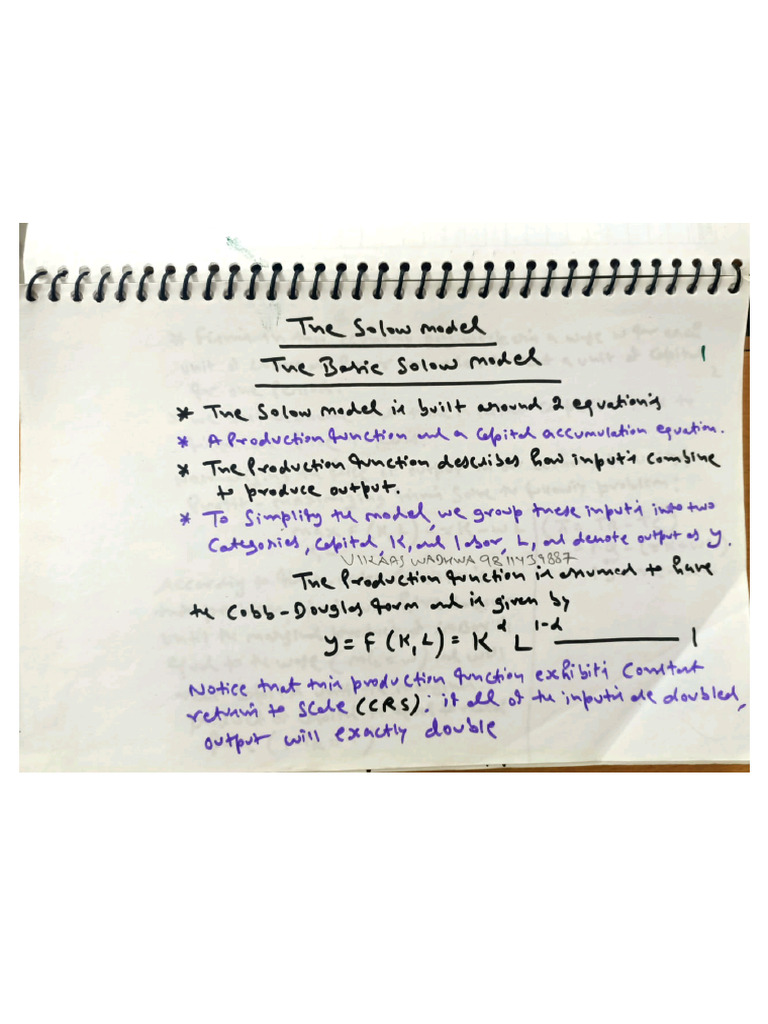 The Solow model
The Basic Solow model
1
* The Solow model is built around 2 equation's
* A Production function and a Capital accumulation equation.
* The Production function describes how input's combine
to produce output.
* To Simplify the model, we group these input's into two
Categories, Capital, K, and labor, L, and denote output as y.
VIKAAS WADHWA 9811439887
The Production function is assumed to have
the Cobb-Douglas form and is given by
y = F (K, L) = K^α L^1-α ——— 1
Notice that this production function exhibits Constant
returns to scale (CRS); if all of the input's are doubled,
output will exactly double